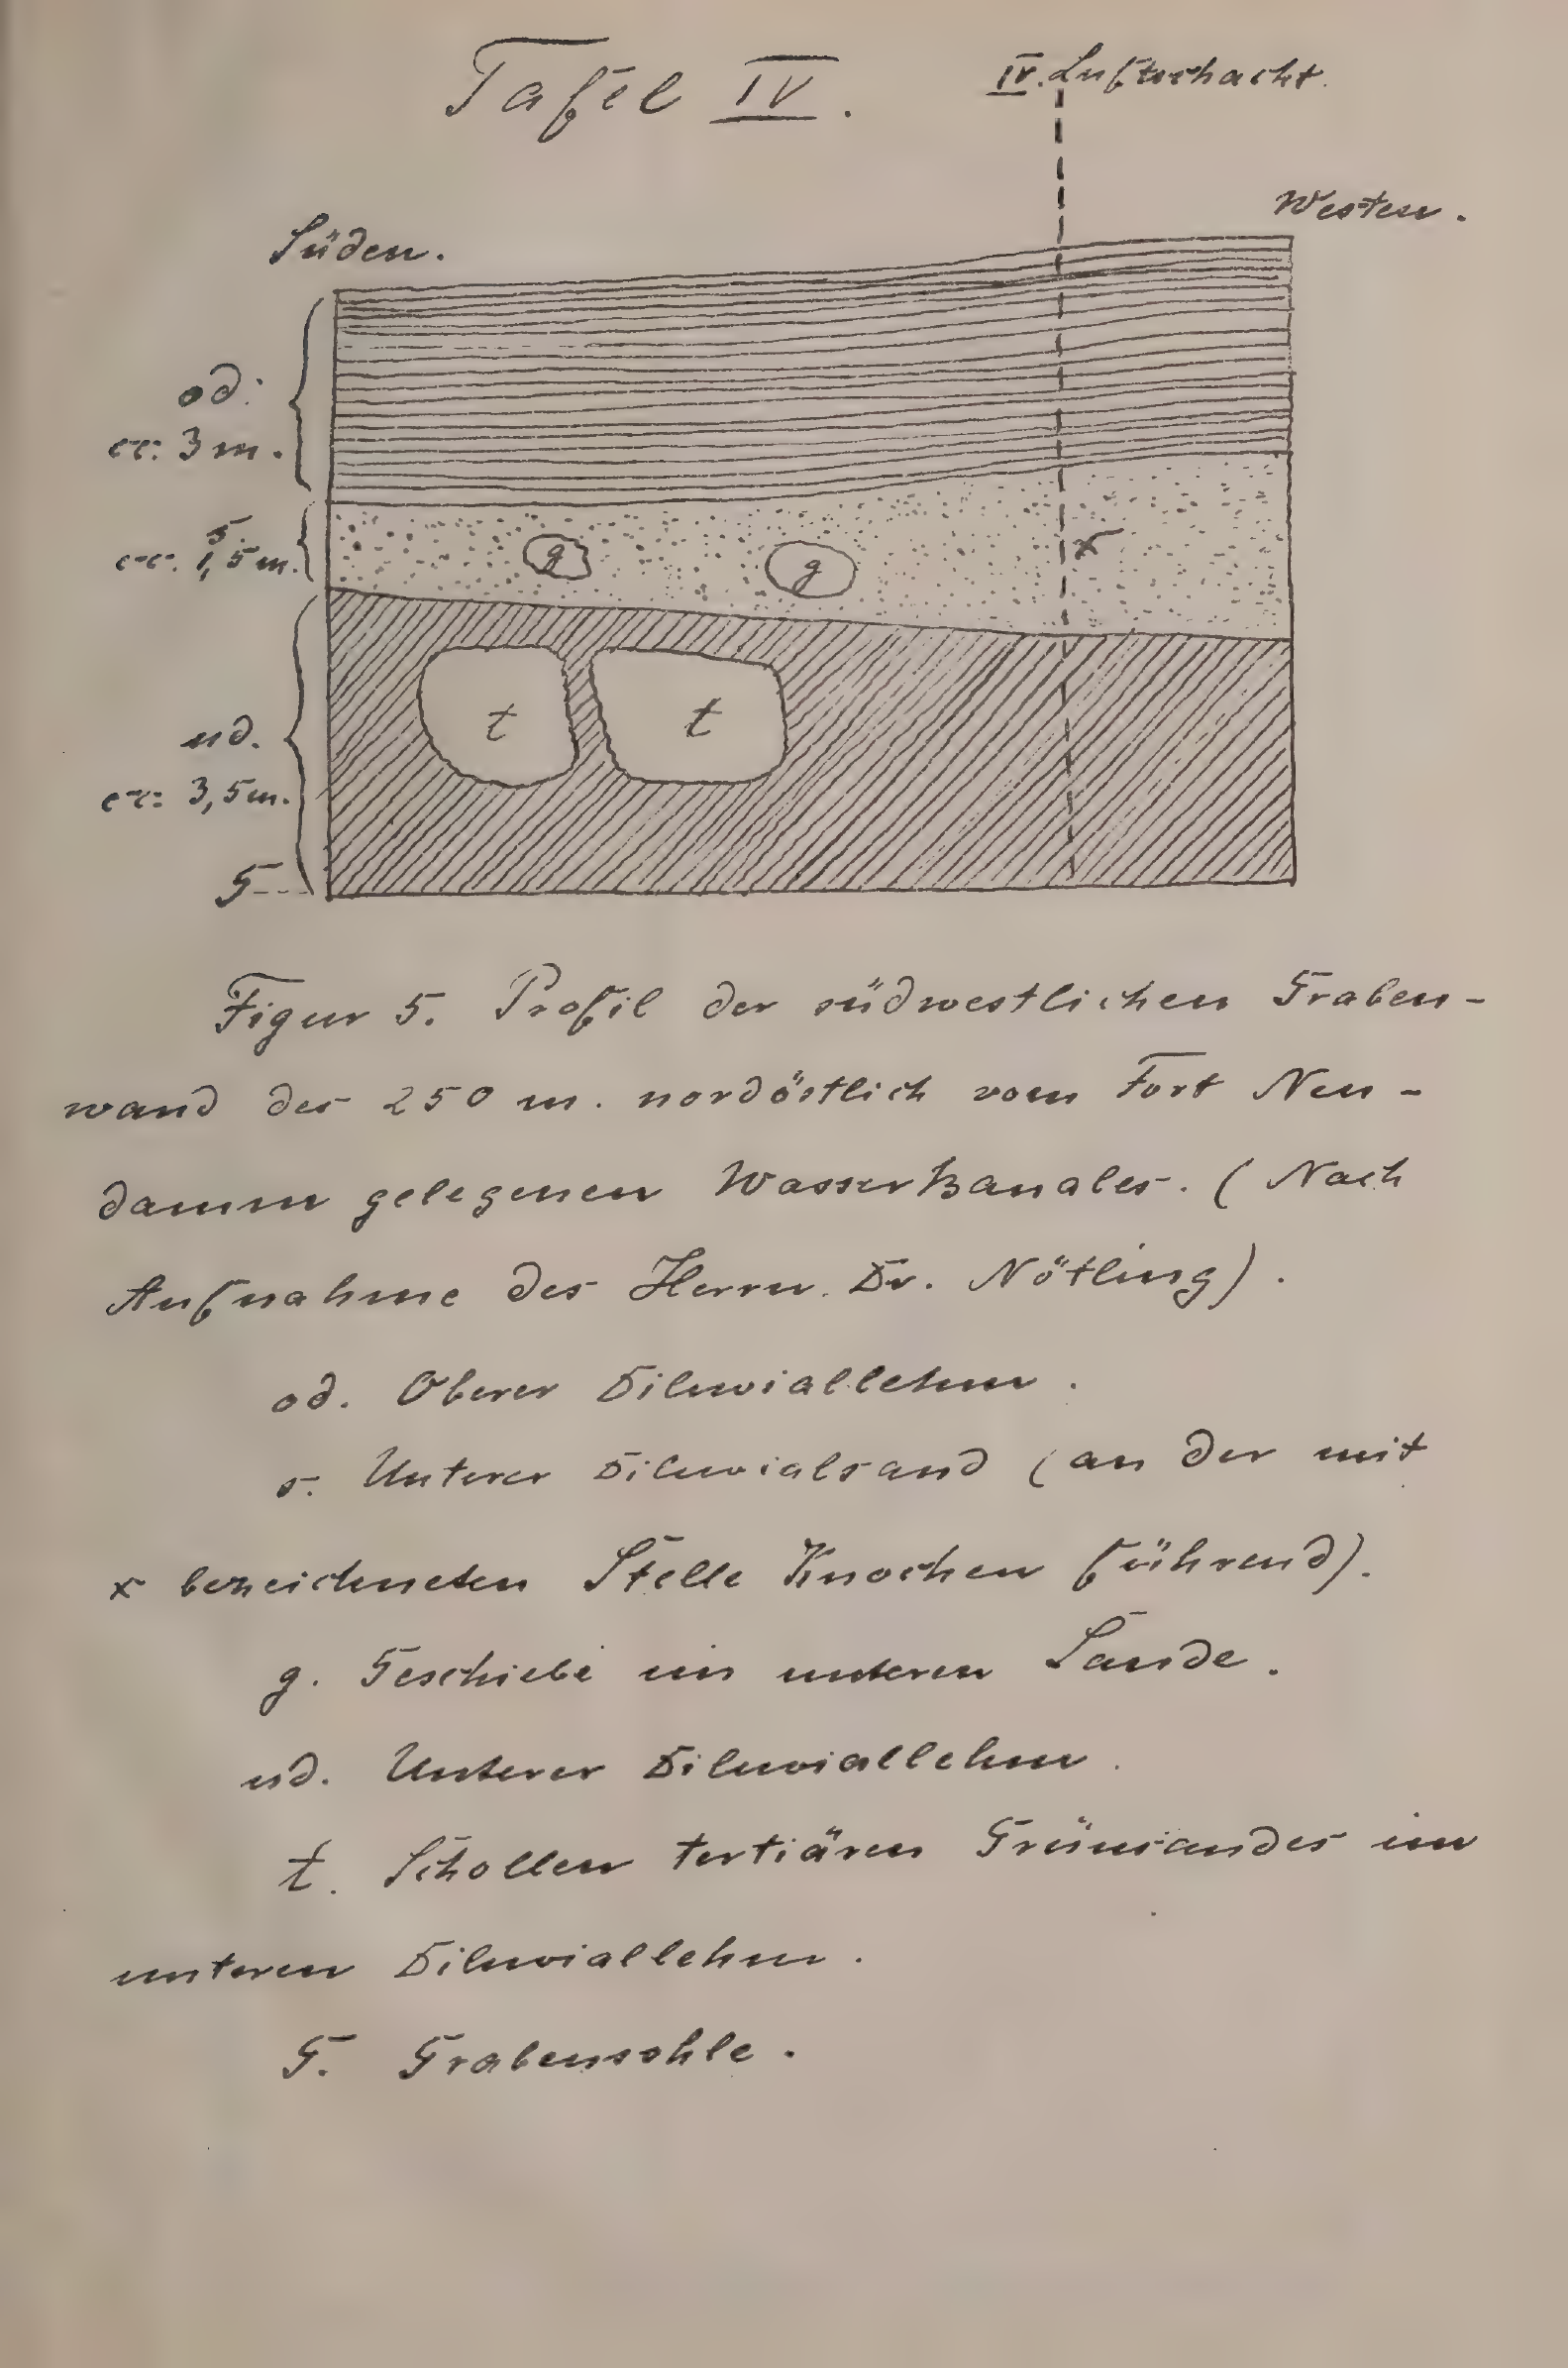 Tafel IV.
IV. Luftschacht.
Westen.
Süden.
od.
cc. 3 m.
s.
cc. 1,5 m.
g
g
x
ud.
cc. 3,5 m.
t
t
G
Figur 5. Profil der südwestlichen Graben-
wand des 250 m. nordöstlich vom Fort Neu-
damm gelegenen Wasserkanales. (Nach
Aufnahme des Herrn Dr. Nötling).
od. Oberer Diluviallehm.
s. Unterer Diluvialsand (an der mit
x bezeichneten Stelle Knochen führend).
g. Geschiebe im unteren Sande.
ud. Unterer Diluviallehm.
t. Schollen tertiären Grünsandes im
unteren Diluviallehm.
G. Grabensohle.